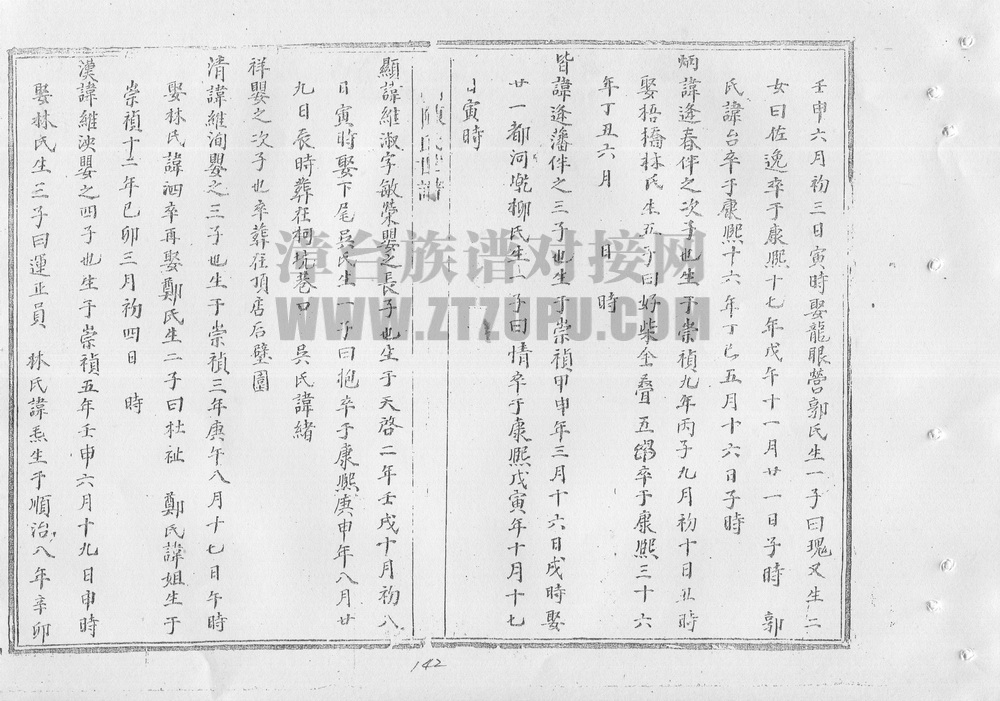 壬申六月初三日寅時娶龍眼營郭氏生一子曰瑰又生二
女曰佐逸卒于康熙十七年戊午十一月廿一日子時 郭
氏諱台卒于康熙十六年丁巳五月十六日子時
炳諱逢春伴之次子也生于崇禎九年丙子九月初十日丑時
娶梧橋林氏生五子曰好柴全叠五卒于康熙三十六
年丁丑六月 日 時
皆諱逢藩伴之三子也生于崇禎甲申年三月十六日戌時娶
廿一都河墘柳氏生一子曰情卒于康熙戊寅年十月十七
日寅時
陳氏世譜
顯諱維淑字敏榮嬰之長子也生于天啓二年壬戌十月初八
日寅時娶下尾吳氏生一子曰抱卒于康熙庚申年八月廿
九日辰時葬在柯坑巷口 吳氏諱緒
祥嬰之次子也卒葬在頂店后壁園
清諱維洵嬰之三子也生于崇禎三年庚午八月十七日午時
娶林氏諱泗卒再娶鄭氏生二子曰杜祉 鄭氏諱姐生于
崇禎十二年己卯三月初四日 時
漢諱維泱嬰之四子也生于崇禎五年壬申六月十九日申時
娶林氏生三子曰運正員 林氏諱烝生于順治八年辛卯
142
漳台族谱对接网
WWW.ZTZUPU.COM